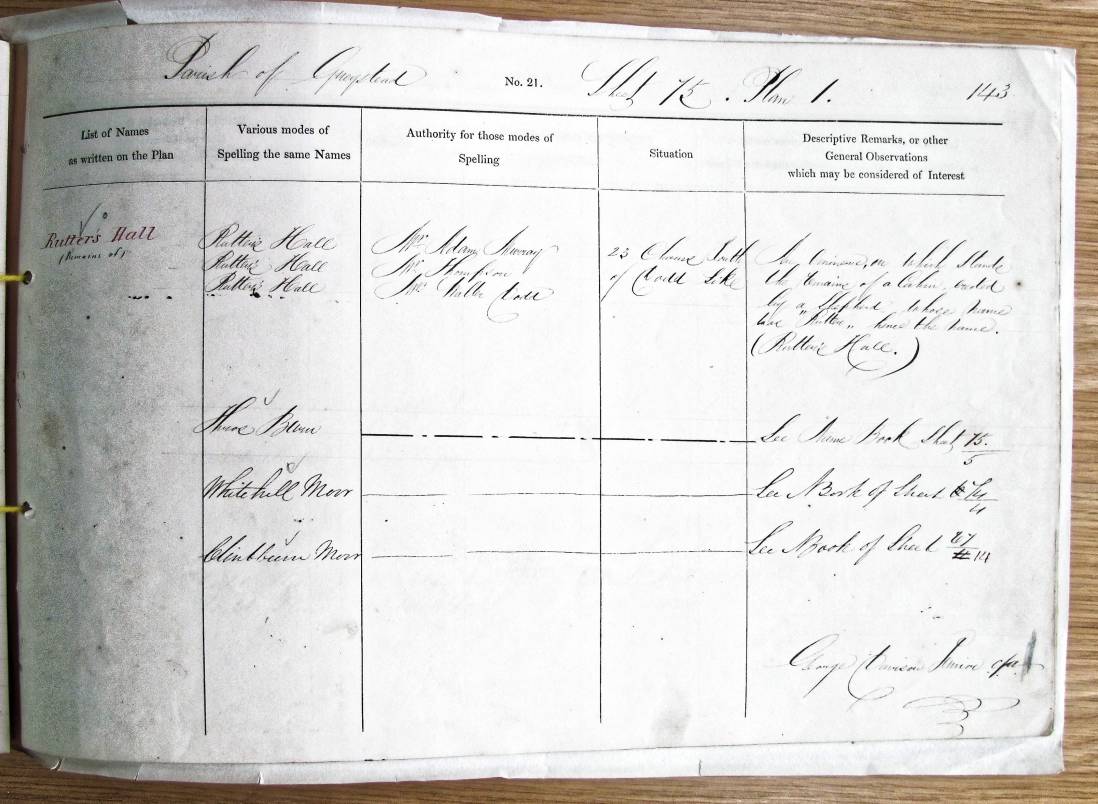 Parish of Greystead No. 21. Sheet 75. Plan 1. 143
List of Names
as written on the Plan
Various modes of
Spelling the same Names
Authority for those modes of
Spelling
Situation
Descriptive Remarks, or other
General Observations
which may be considered of Interest
Rutter's Hall
(Remains of)
Rutter's Hall
Rutter's Hall
Rutter's Hall
Mr. Adam Murray
Mr. Thompson
Mr. Walter Dodd
23 Chains South
of Dodd Sike
An eminence, on which stands
the remains of a cabin, erected
by a Shepherd whose name
was "Rutter" hence the name.
(Rutter's Hall.)
Burn
See Name Book Sheet 75.
5
Whitehill Moor
See N Book of Sheet
4
Clintburn Moor
See N Book of Sheet 67
14
George Davison Junior